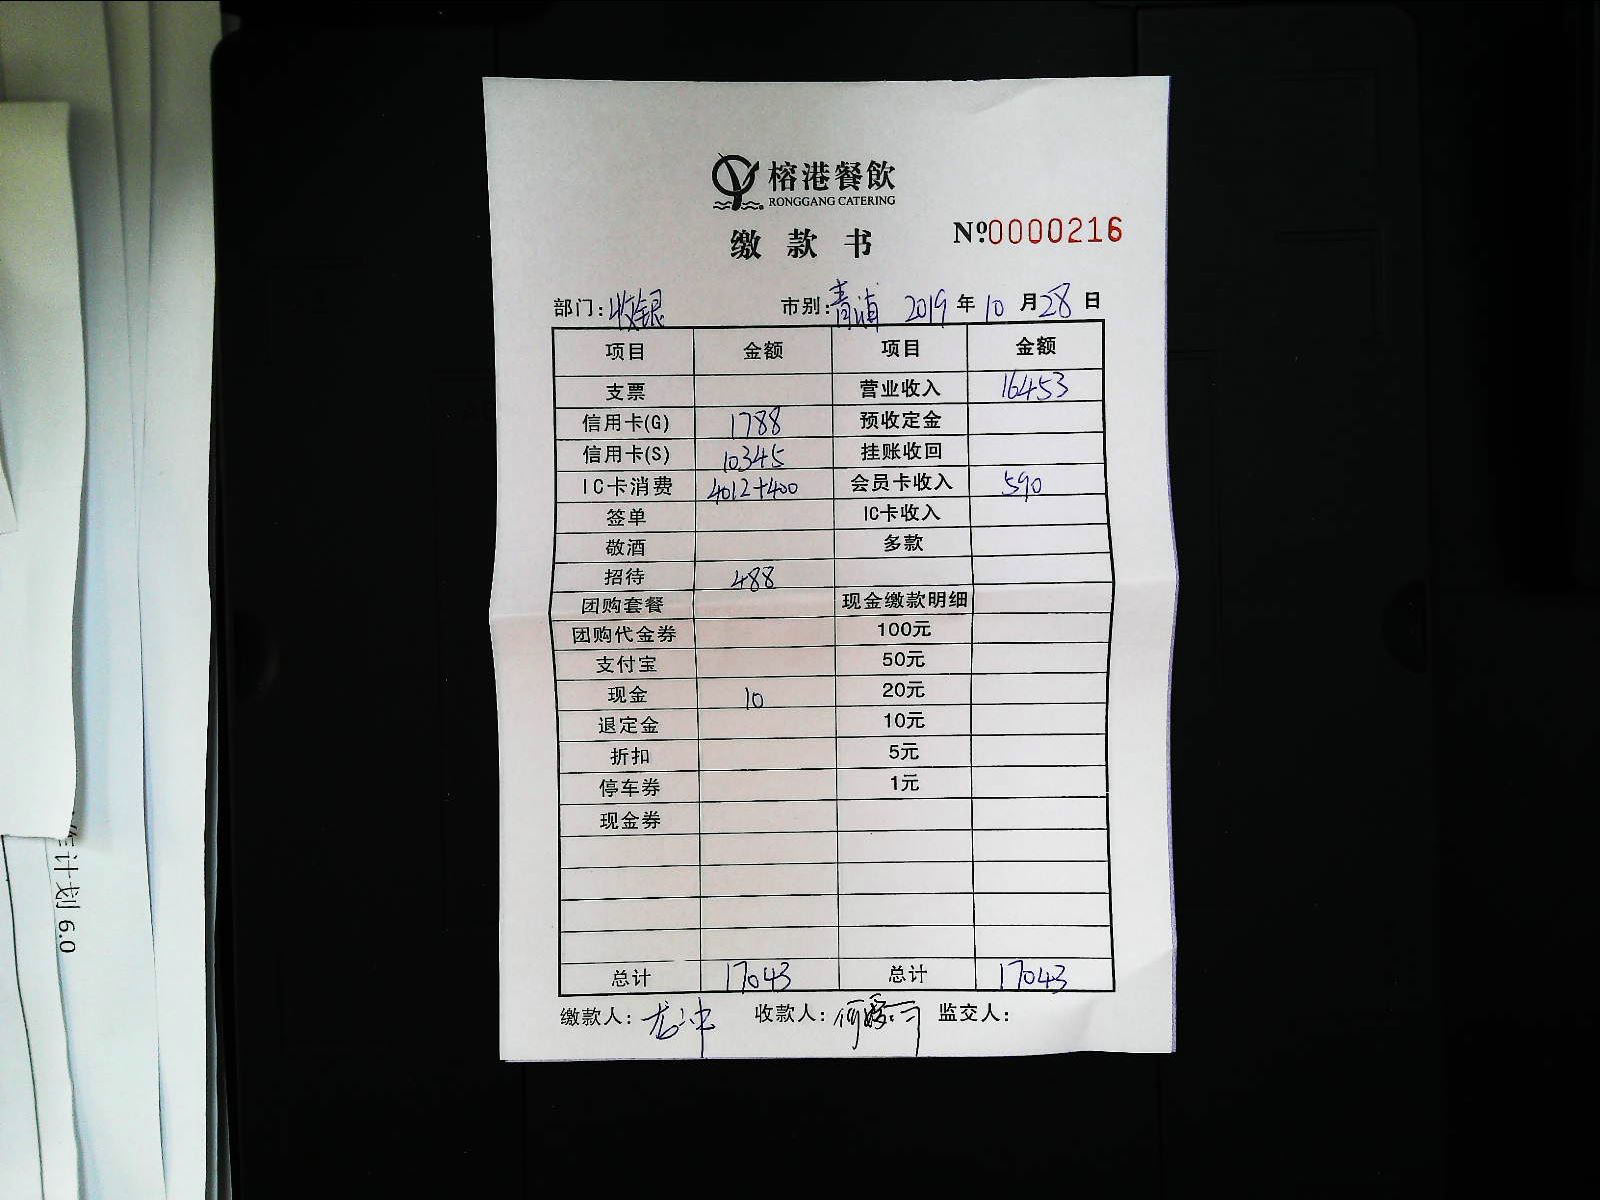 榕港餐飲
RONGGANG CATERING
缴款书
Nº0000216
部门:收银 市别:青浦 2019年10月28日
项目 金额 项目 金额
支票 营业收入 16453
信用卡(G) 1788 预收定金
信用卡(S) 10345 挂账收回
IC卡消费 4012+400 会员卡收入 590
签单 IC卡收入
敬酒 多款
招待 488
团购套餐 现金缴款明细
团购代金券 100元
支付宝 50元
现金 10 20元
退定金 10元
折扣 5元
停车券 1元
现金券
总计 17043 总计 17043
缴款人: 收款人: 监交人:
计划 6.0